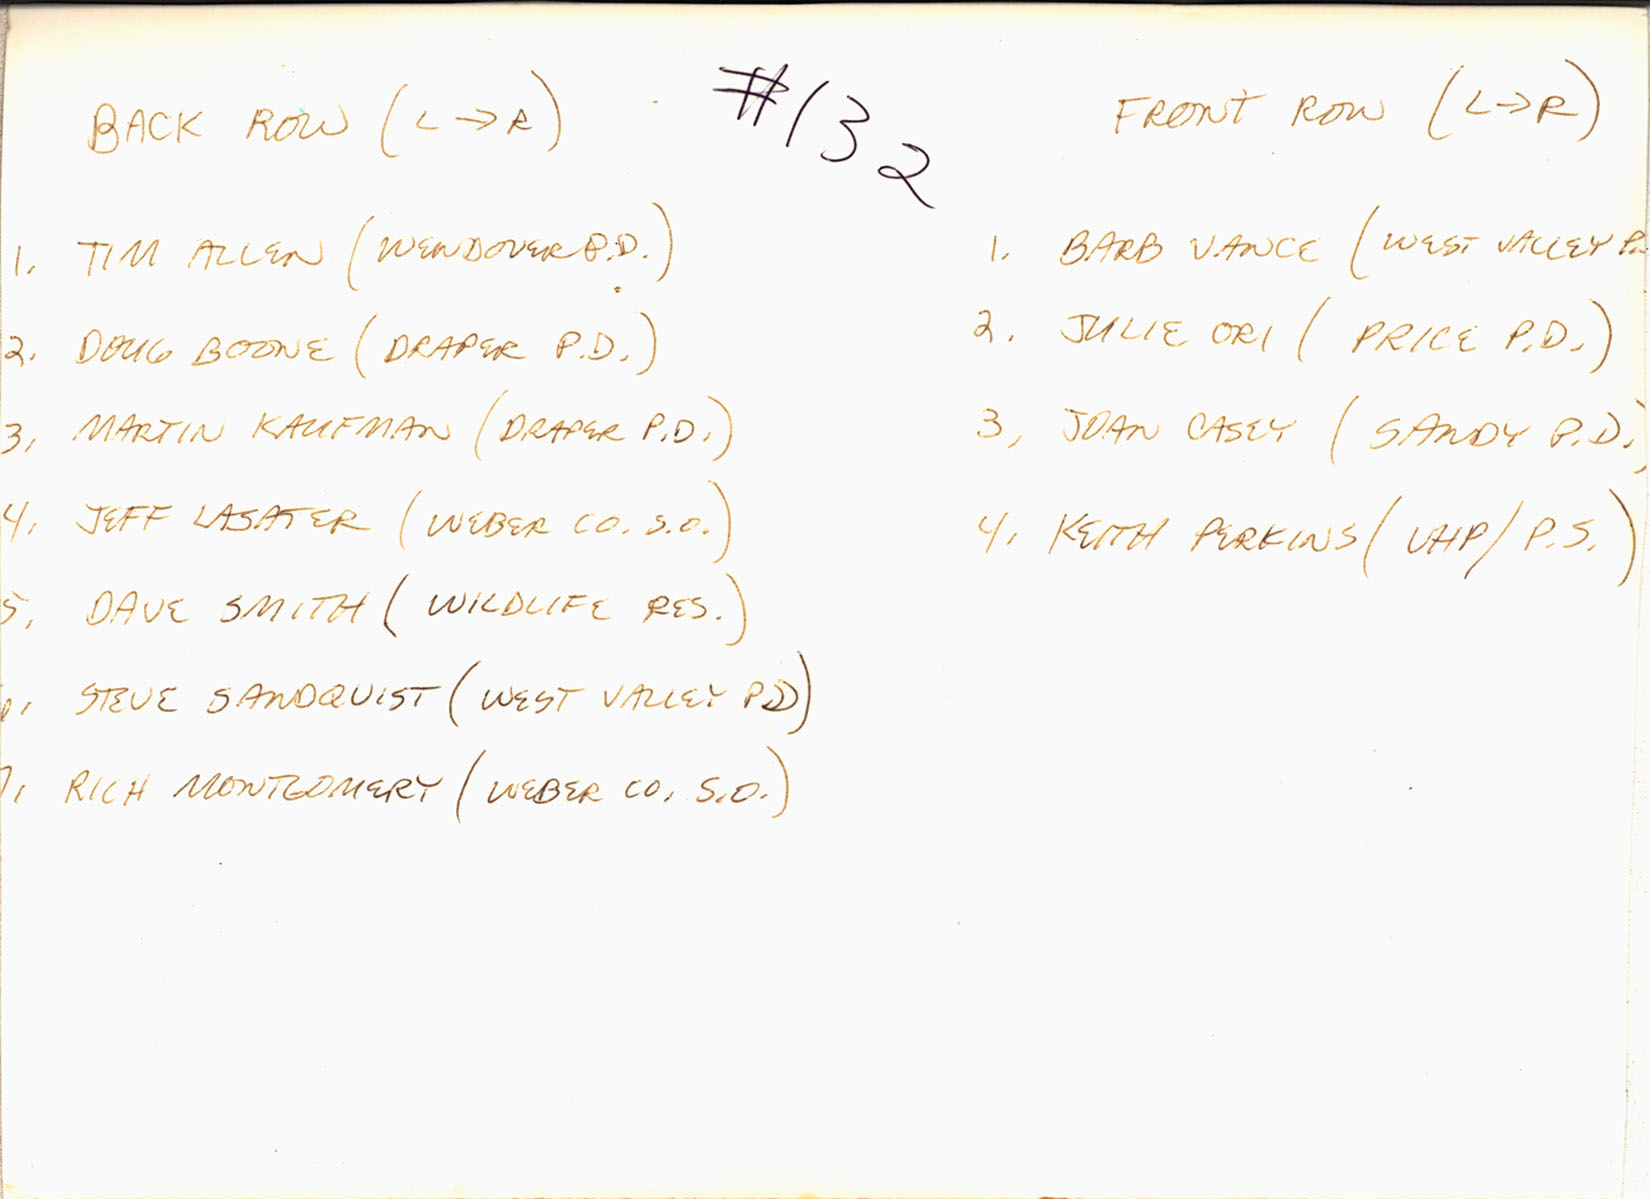 #132
BACK ROW (L→R)
1. TIM ALLEN (WENDOVER P.D.)
2. DOUG BOONE (DRAPER P.D.)
3, MARTIN KAUFMAN (DRAPER P.D.)
4, JEFF LASATER (WEBER CO. S.O.)
5, DAVE SMITH (WILDLIFE RES.)
6, STEVE SANDQUIST (WEST VALLEY P.D)
7, RICH MONTGOMERY (WEBER CO, S.O.)
FRONT ROW (L→R)
1. BARB VANCE (WEST VALLEY P.
2. JULIE ORI (PRICE P.D.)
3, JOAN CASEY (SANDY P.D.)
4, KEITH PERKINS (UHP/P.S.)